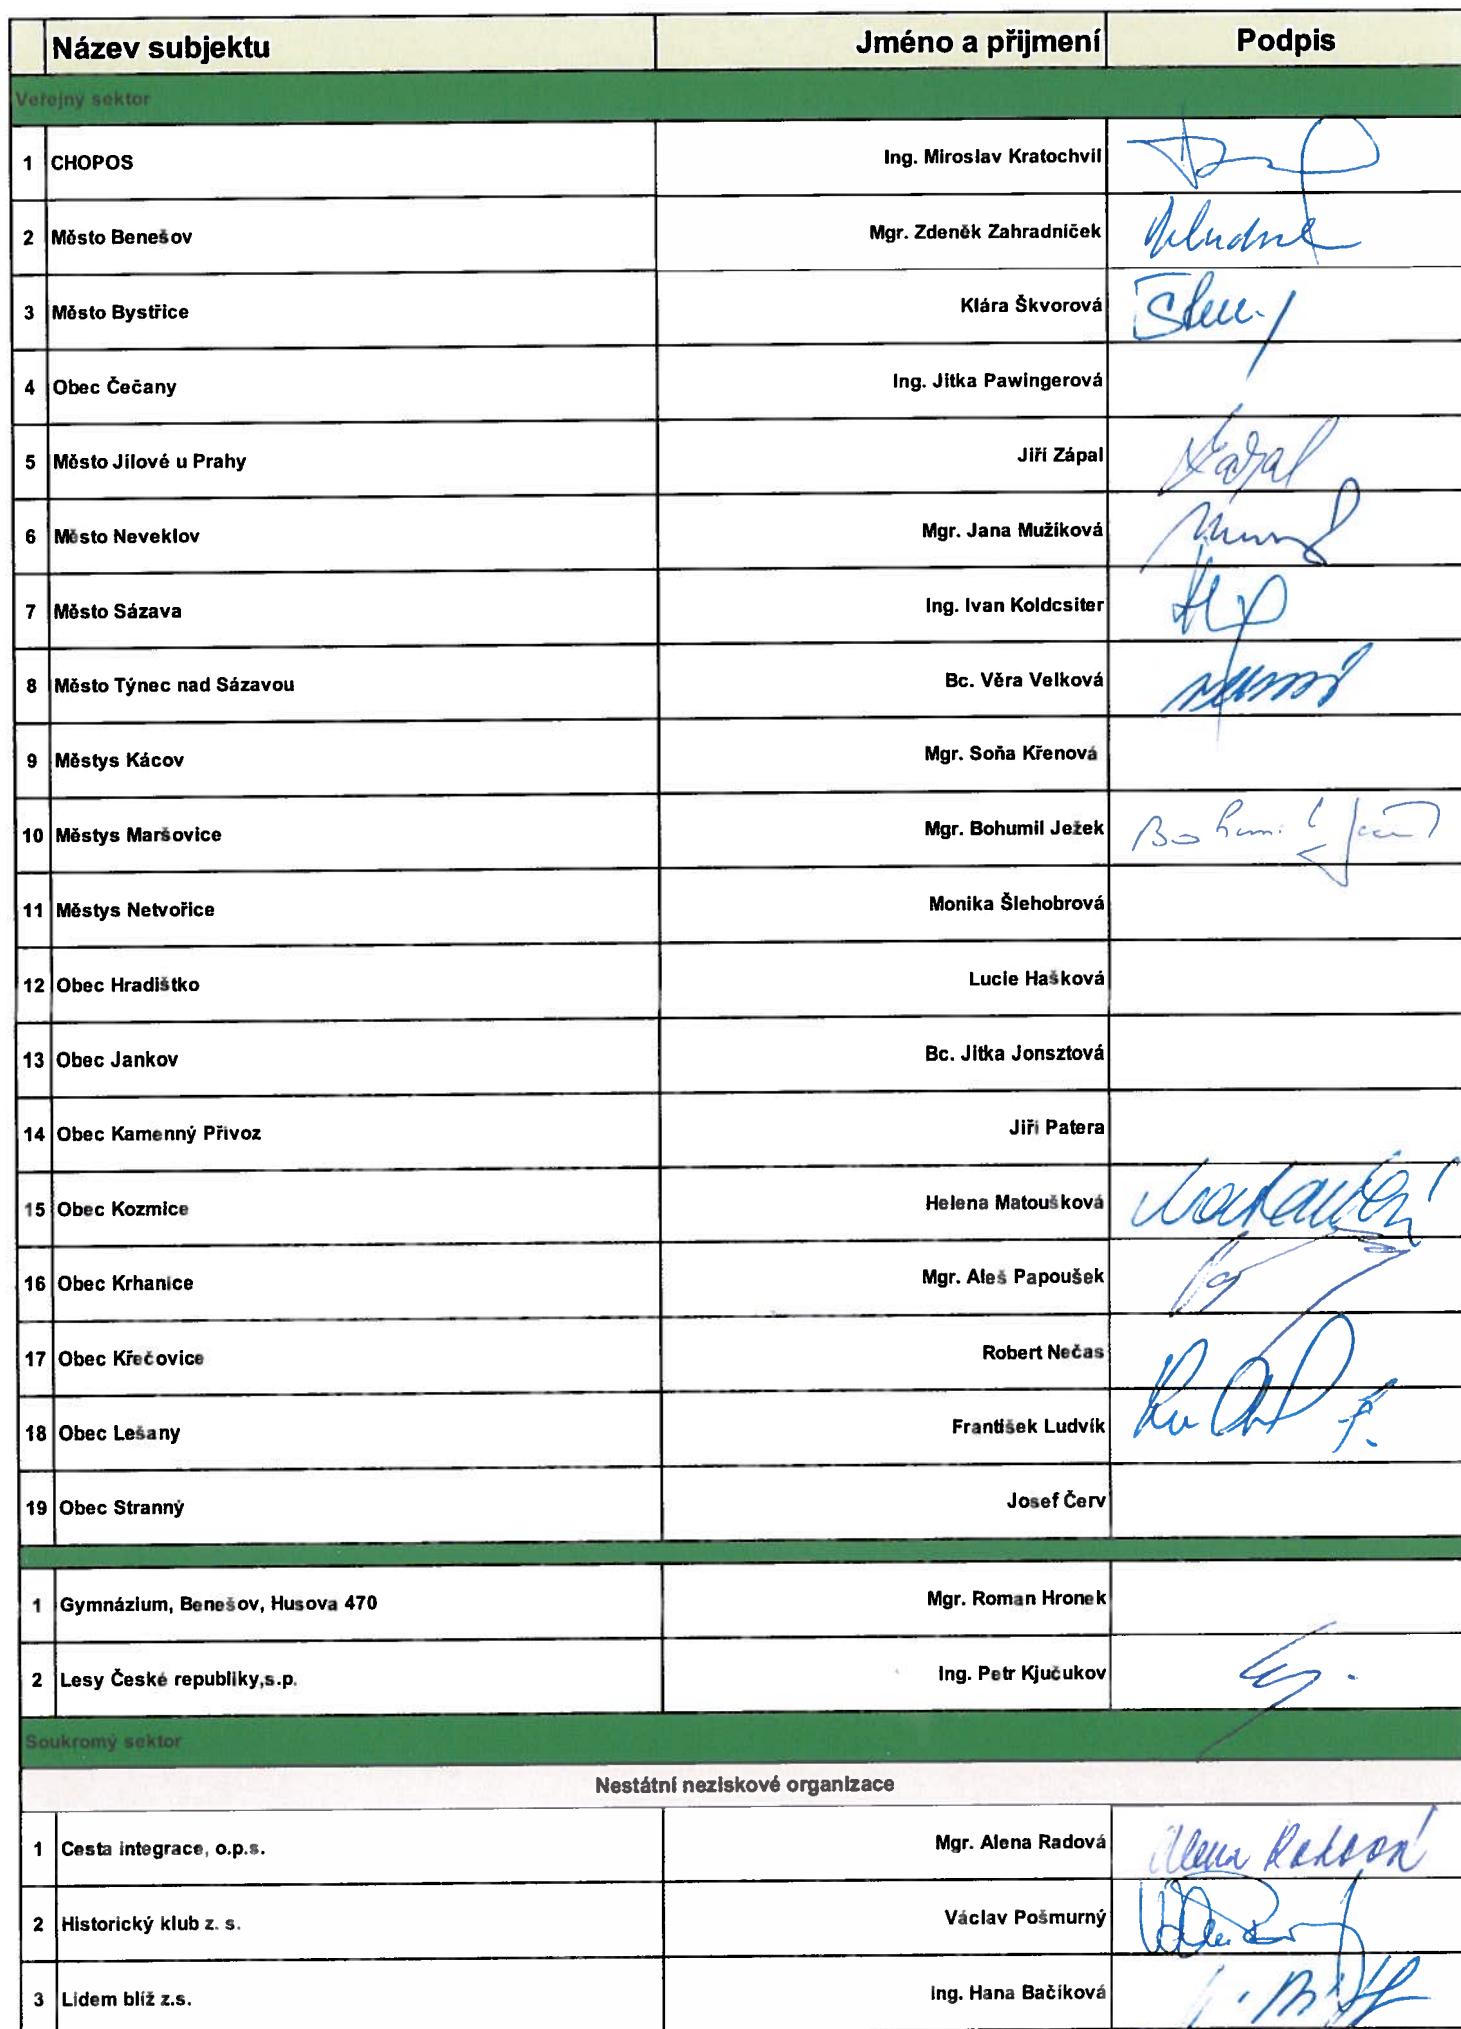 Název subjektu Jméno a přijmení Podpis
Veřejný sektor
1 CHOPOS Ing. Miroslav Kratochvíl
2 Město Benešov Mgr. Zdeněk Zahradníček
3 Město Bystřice Klára Škvorová
4 Obec Čečany Ing. Jitka Pawingerová
5 Město Jílové u Prahy Jiří Zápal
6 Město Neveklov Mgr. Jana Mužíková
7 Město Sázava Ing. Ivan Koldcsiter
8 Město Týnec nad Sázavou Bc. Věra Velková
9 Městys Kácov Mgr. Soňa Křenová
10 Městys Maršovice Mgr. Bohumil Ježek
11 Městys Netvořice Monika Šlehobrová
12 Obec Hradištko Lucie Hašková
13 Obec Jankov Bc. Jitka Jonsztová
14 Obec Kamenný Přívoz Jiří Patera
15 Obec Kozmice Helena Matoušková
16 Obec Krhanice Mgr. Aleš Papoušek
17 Obec Křečovice Robert Nečas
18 Obec Lešany František Ludvík
19 Obec Stranný Josef Červ
1 Gymnázium, Benešov, Husova 470 Mgr. Roman Hronek
2 Lesy České republiky,s.p. Ing. Petr Kjučukov
Soukromý sektor
Nestátní neziskové organizace
1 Cesta integrace, o.p.s. Mgr. Alena Radová Alena Radová
2 Historický klub z. s. Václav Pošmurný
3 Lidem blíž z.s. Ing. Hana Bačíková